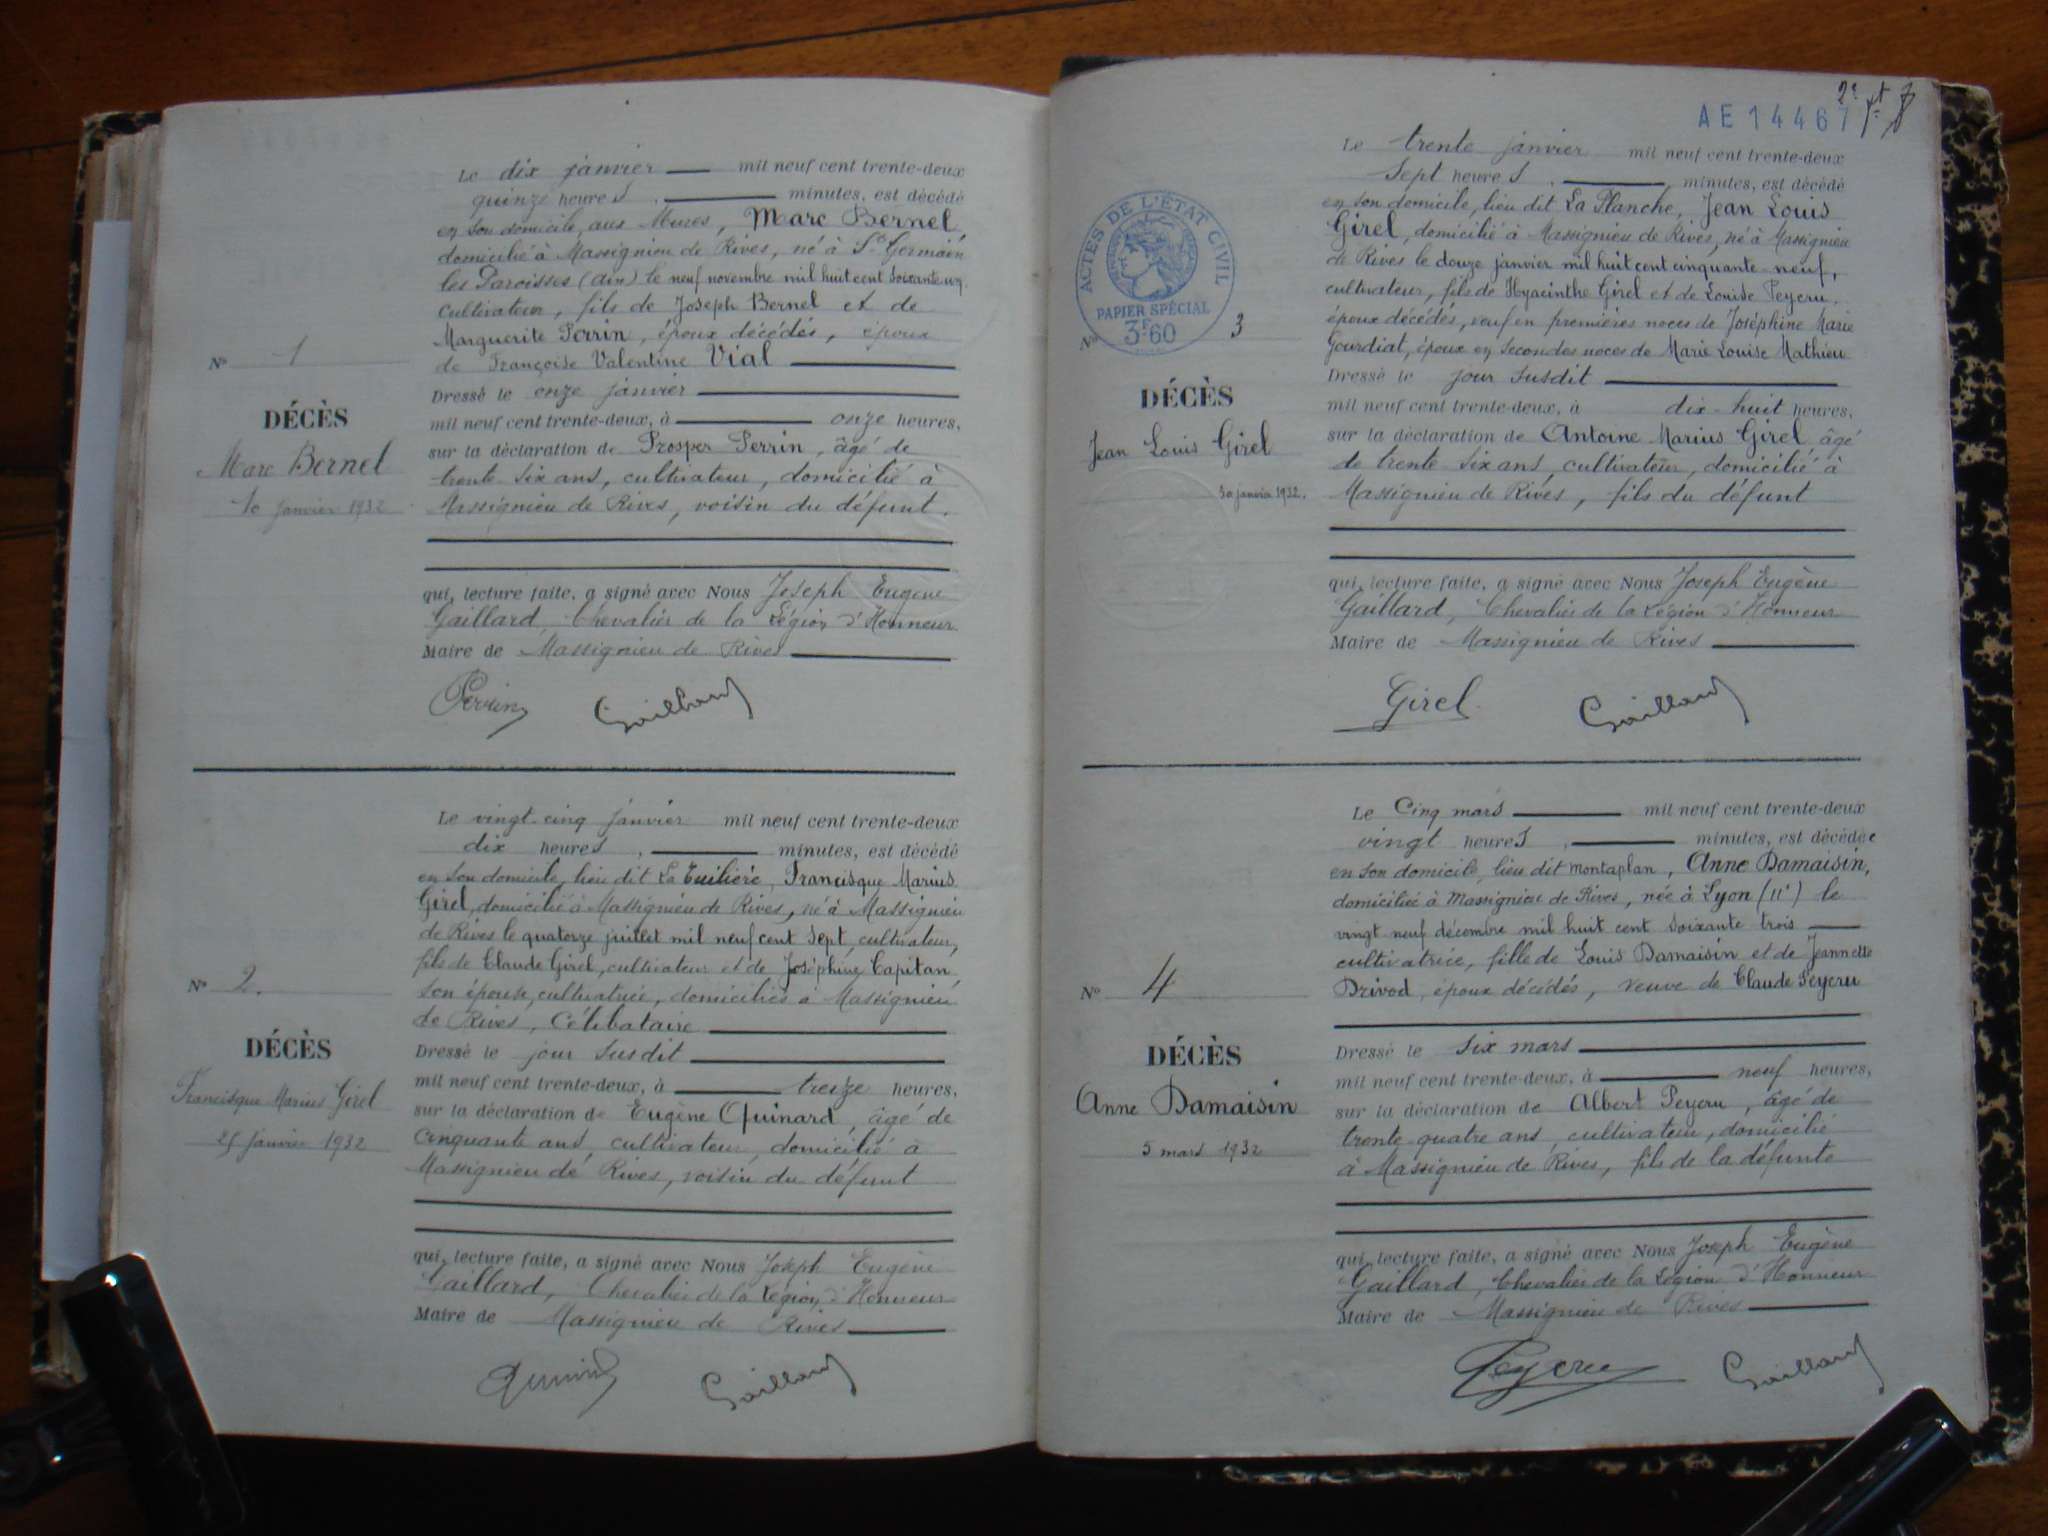 Le dix janvier mil neuf cent trente-deux
quinze heures, minutes, est décédé
en son domicile, aux Mures, Marc Bernel,
domicilié à Massignieu de Rives, né à St Germain
les Paroisses (Ain) le neuf novembre mil huit cent soixante un,
cultivateur, fils de Joseph Bernel et de
Marguerite Perrin, époux décédés, époux
de Françoise Valentine Vial
Dressé le onze janvier
mil neuf cent trente-deux, à onze heures,
sur la déclaration de Prosper Perrin, âgé de
trente six ans, cultivateur, domicilié à
Massignieu de Rives, voisin du défunt.
qui, lecture faite, a signé avec Nous Joseph Eugène
Gaillard, Chevalier de la Légion d'Honneur
Maire de Massignieu de Rives
Perrin Gaillard
No 1
DÉCÈS
Marc Bernel
10 janvier 1932
Le vingt-cinq janvier mil neuf cent trente-deux
dix heures, minutes, est décédé
en son domicile, lieu dit La Tuilière, Francisque Marius
Girel, domicilié à Massignieu de Rives, né à Massignieu
de Rives le quatorze juillet mil neuf cent sept, cultivateur,
fils de Claude Girel, cultivateur et de Joséphine Capitan,
son épouse, cultivatrice, domiciliés à Massignieu
de Rives, Célibataire
Dressé le jour susdit
mil neuf cent trente-deux, à treize heures,
sur la déclaration de Eugène Quinard, âgé de
cinquante ans, cultivateur, domicilié à
Massignieu de Rives, voisin du défunt
qui, lecture faite, a signé avec Nous Joseph Eugène
Gaillard, Chevalier de la Légion d'Honneur
Maire de Massignieu de Rives
Gaillard
No 2.
DÉCÈS
Francisque Marius Girel
25 janvier 1932
AE 14467
ACTES DE L'ÉTAT CIVIL
PAPIER SPÉCIAL
3F60
Le trente janvier mil neuf cent trente-deux
sept heures, minutes, est décédé
en son domicile, lieu dit La Planche, Jean Louis
Girel, domicilié à Massignieu de Rives, né à Massignieu
de Rives le douze janvier mil huit cent cinquante-neuf,
cultivateur, fils de Hyacinthe Girel et de Louise Peycru,
époux décédés, veuf en premières noces de Joséphine Marie
Gourdiat, époux en secondes noces de Marie Louise Mathieu
Dressé le jour susdit
mil neuf cent trente-deux, à dix-huit heures,
sur la déclaration de Antoine Marius Girel, âgé
de trente six ans, cultivateur, domicilié à
Massignieu de Rives, fils du défunt
qui, lecture faite, a signé avec Nous Joseph Eugène
Gaillard, Chevalier de la Légion d'Honneur
Maire de Massignieu de Rives
Girel Gaillard
No 3
DÉCÈS
Jean Louis Girel
30 janvier 1932.
Le Cinq mars mil neuf cent trente-deux
vingt heures, minutes, est décédée
en son domicile, lieu dit Montaplan, Anne Damaisin,
domiciliée à Massignieu de Rives, née à Lyon (IIe) le
vingt neuf décembre mil huit cent soixante trois
cultivatrice, fille de Louis Damaisin et de Jeannette
Drivod, époux décédés, veuve de Claude Peycru
Dressé le six mars
mil neuf cent trente-deux, à neuf heures,
sur la déclaration de Albert Peycru, âgé de
trente-quatre ans, cultivateur, domicilié
à Massignieu de Rives, fils de la défunte
qui, lecture faite, a signé avec Nous Joseph Eugène
Gaillard, Chevalier de la Légion d'Honneur
Maire de Massignieu de Rives
Peycru Gaillard
No 4
DÉCÈS
Anne Damaisin
5 mars 1932